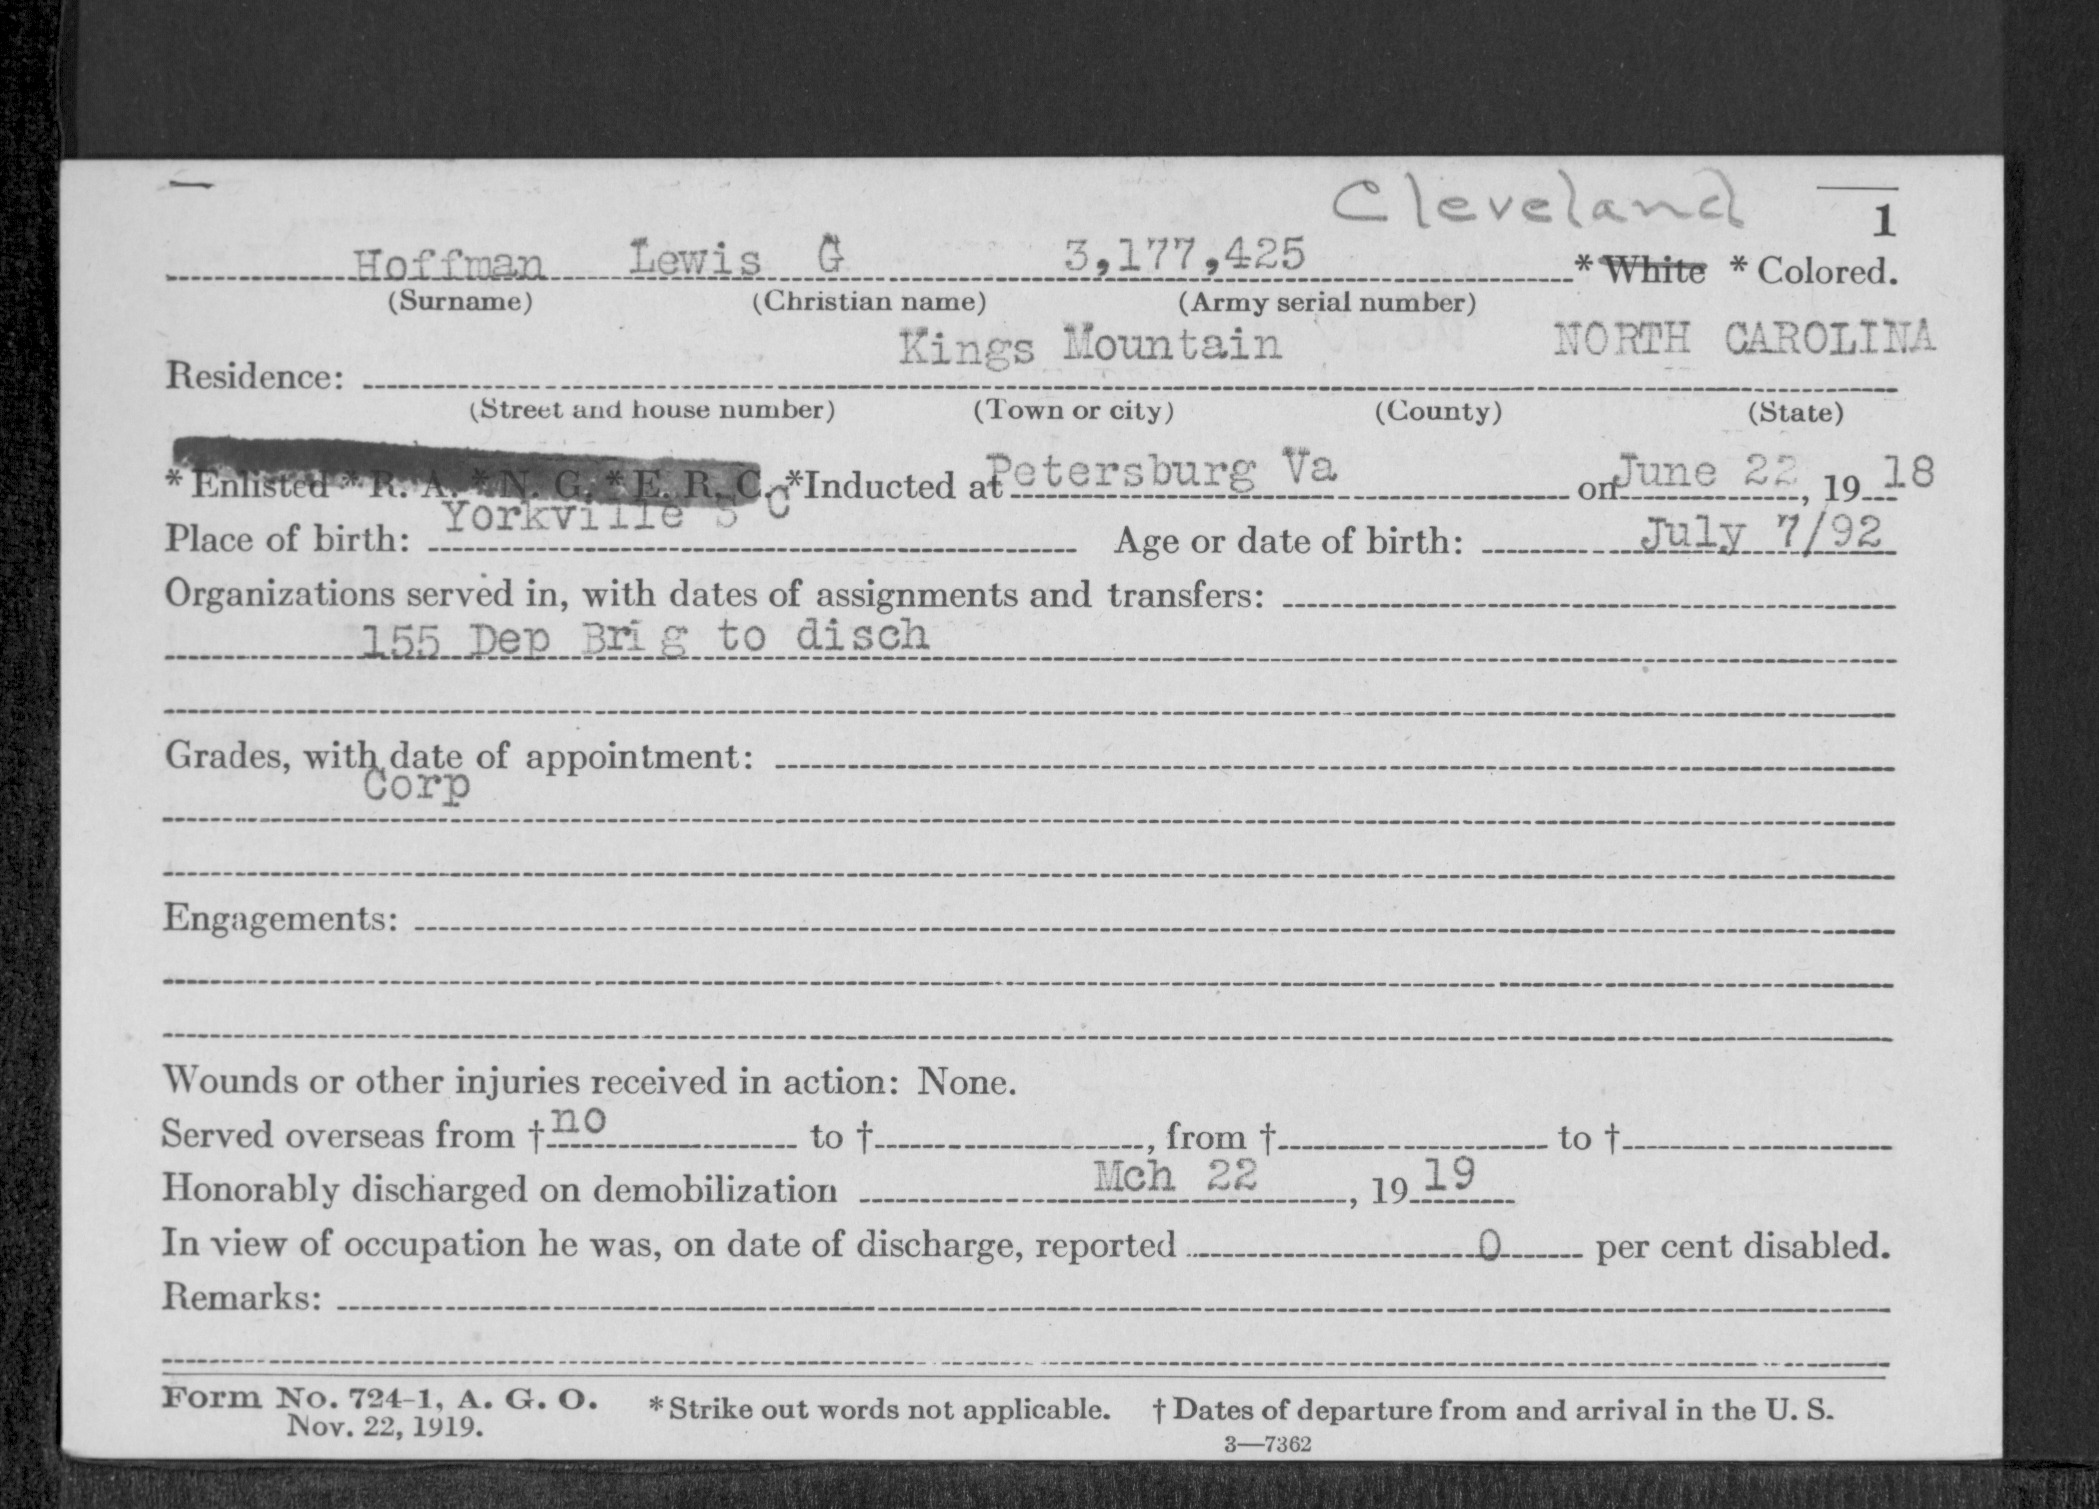 Cleveland
1
Hoffman Lewis G 3,177,425 * White * Colored.
(Surname) (Christian name) (Army serial number)
Kings Mountain NORTH CAROLINA
Residence:
(Street and house number) (Town or city) (County) (State)
* Enlisted * R. A. * N. G. * E. R. C. *Inducted at Petersburg Va on June 22, 1918
Place of birth: Yorkville S C Age or date of birth: July 7/92
Organizations served in, with dates of assignments and transfers:
155 Dep Brig to disch
Grades, with date of appointment:
Corp
Engagements:
Wounds or other injuries received in action: None.
Served overseas from † no to †, from † to †
Honorably discharged on demobilization Mch 22, 19 19
In view of occupation he was, on date of discharge, reported 0 per cent disabled.
Remarks:
Form No. 724-1, A. G. O. * Strike out words not applicable. † Dates of departure from and arrival in the U. S.
Nov. 22, 1919.
3—7362